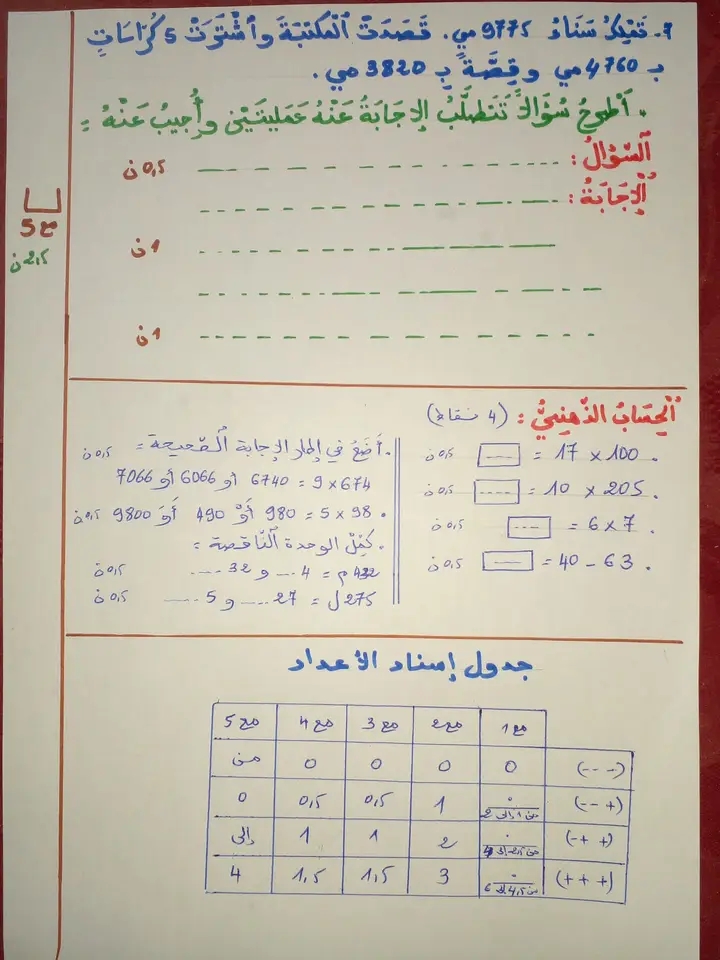 7. تَمْلِكُ سَنَاءُ 9775 مي. قَصَدَتْ الْمَكْتَبَةَ وَاشْتَرَتْ 5 كُرَّاسَاتٍ
بِـ 4760 مي وَقِصَّةً بِـ 3820 مي.
. أَطْرَحُ سُؤَالاً تَتَطَلَّبُ الإِجَابَةُ عَنْهُ عَمَلِيَّتَيْنِ وَأُجِيبُ عَنْهُ :
السُّؤَالُ : 0,5 ن
الْإِجَابَةُ :
1 ن
1 ن
مع 5
2,5 ن
الْحِسَابُ الذِّهْنِيُّ : (4 نقاط)
. 17 × 100 = 0,5 ن
. 10 × 205 = 0,5 ن
. 6 × 7 = 0,5 ن
. 63 - 40 = 0,5 ن
. أَضَعُ في إطار الإجابة الصّحيحة : 0,5 ن
674 × 9 = 6740 أو 6066 أو 7066
. 98 × 5 = 980 أَوْ 490 أَوْ 9800 0,5 ن
. كَمِّلْ الوحدة النَّاقصة :
432 م = 4 .... و 32 .... 0,5 ن
275 ل = 27 .... و 5 .... 0,5 ن
جدول إسناد الأعداد
مع 1 مع 2 مع 3 مع 4 مع 5
(- - -) 0 0 0 0 من
(- - +) من 1 إلى 2 1 0,5 0,5 0
(- + +) 2 1 1 إلى
(+ + +) من 4,5 إلى 6 3 1,5 1,5 4